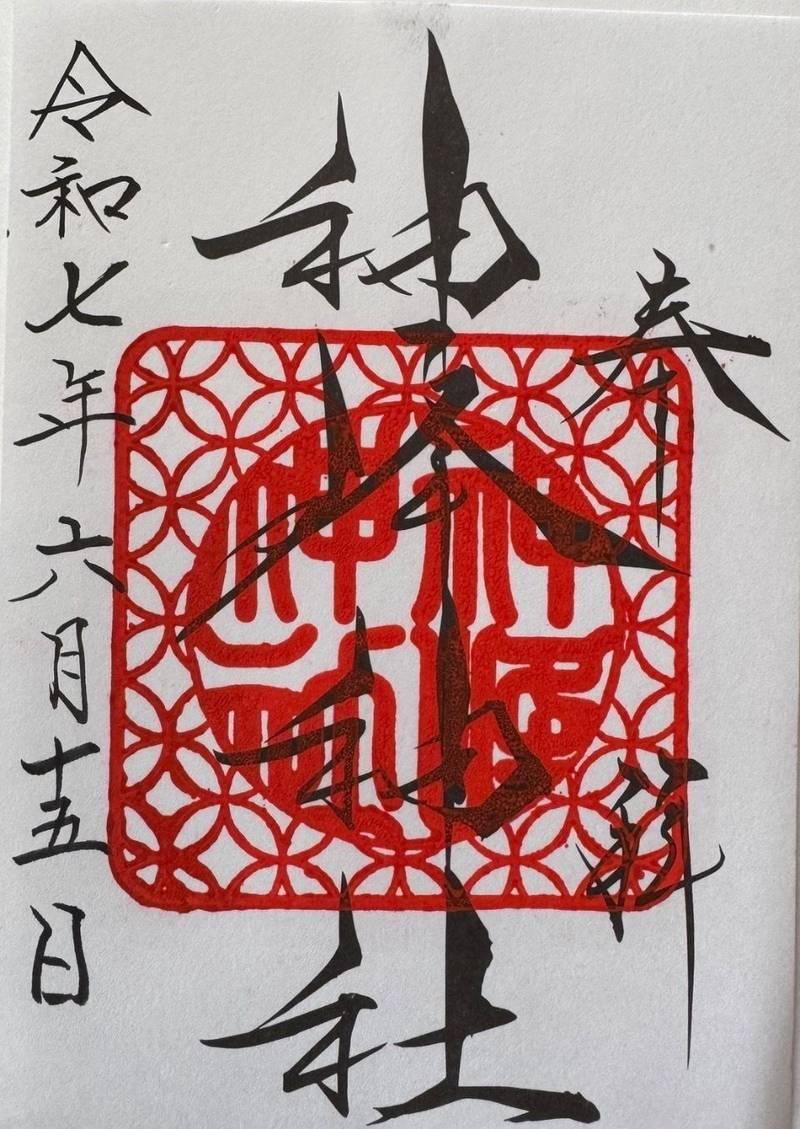 奉拝
神峰神社
令和七年六月十五日